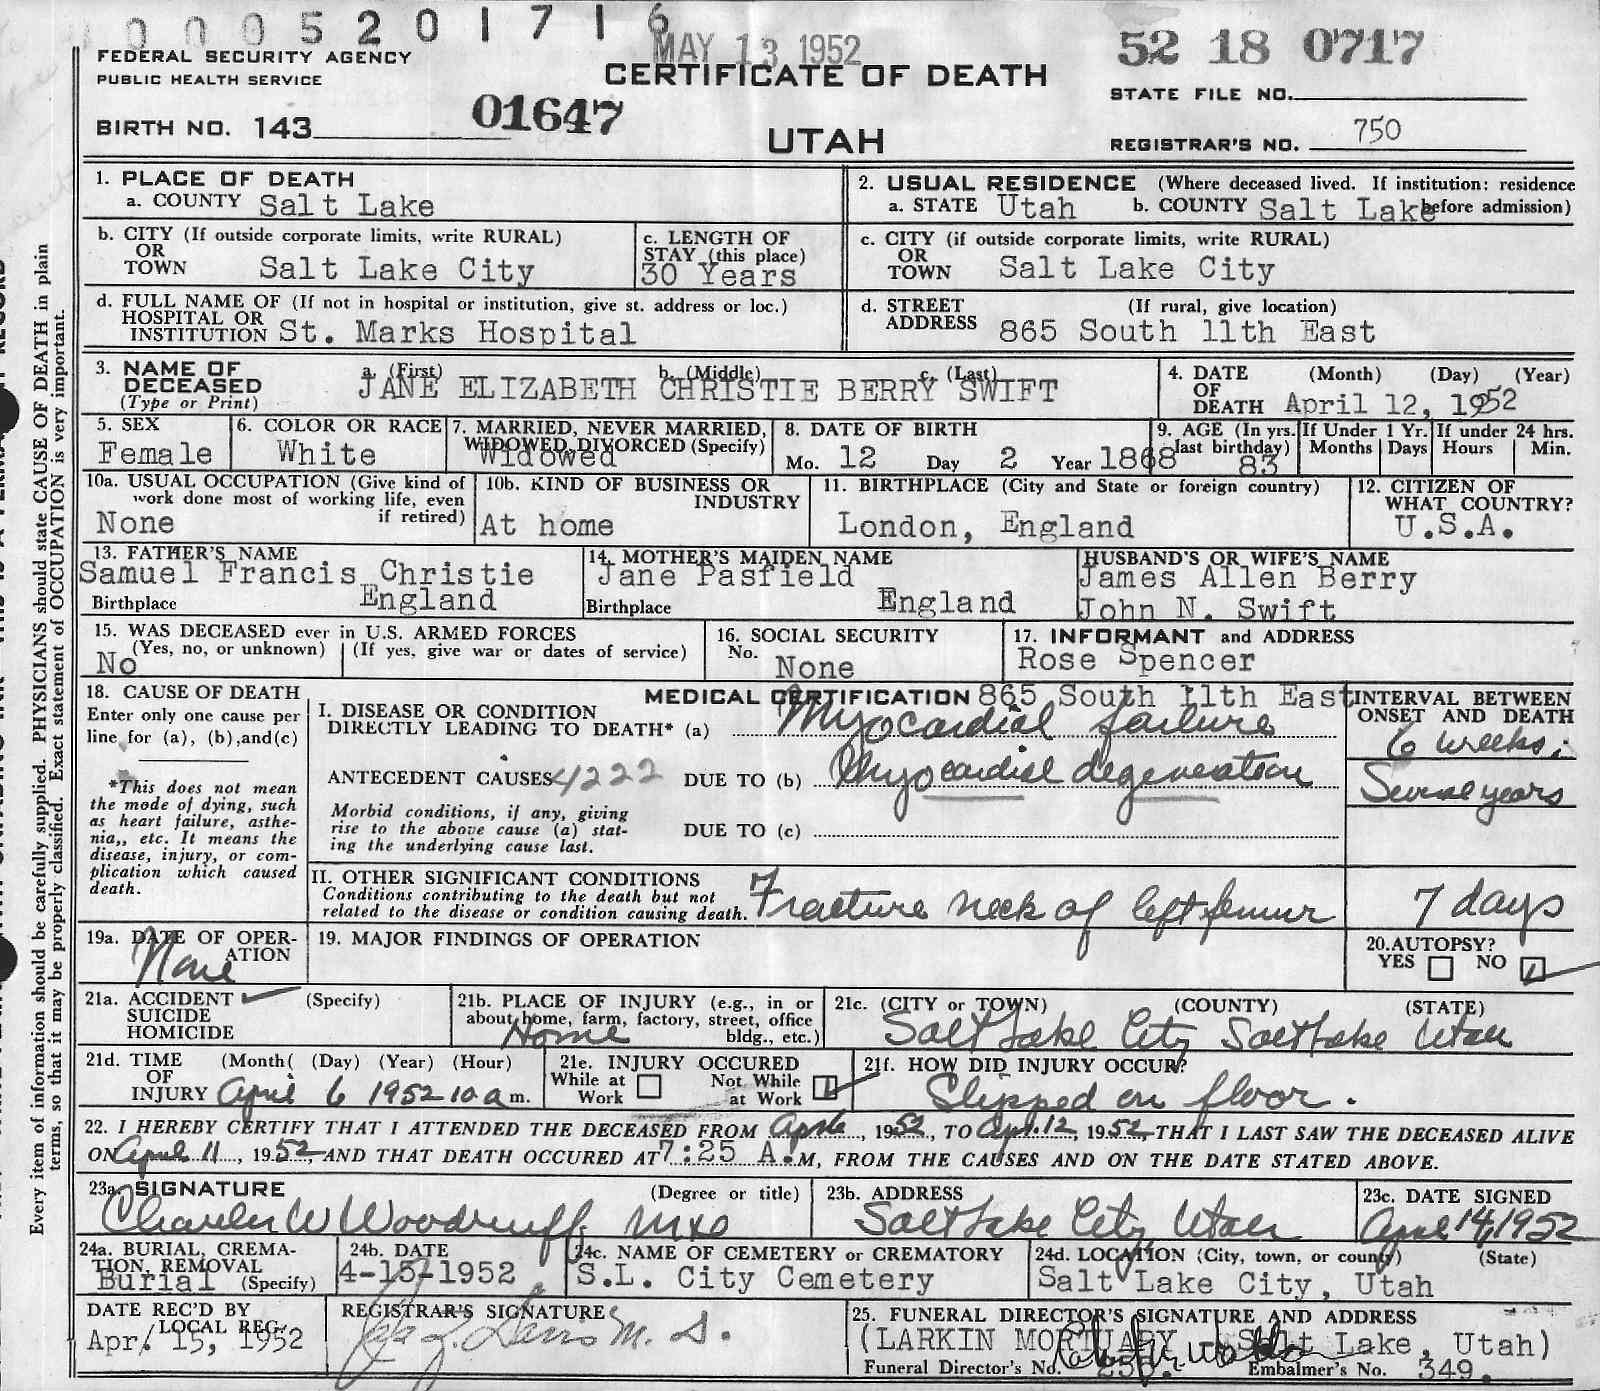 0005201716
MAY 13 1952
52 18 0717
FEDERAL SECURITY AGENCY
PUBLIC HEALTH SERVICE
CERTIFICATE OF DEATH
STATE FILE NO.
BIRTH NO. 143
01647
UTAH
REGISTRAR'S NO. 750
Every item of information should be carefully supplied. PHYSICIANS should state CAUSE OF DEATH in plain
terms, so that it may be properly classified. Exact statement of OCCUPATION is very important.
1. PLACE OF DEATH
a. COUNTY Salt Lake
2. USUAL RESIDENCE (Where deceased lived. If institution: residence
a. STATE Utah b. COUNTY Salt Lake before admission)
b. CITY (If outside corporate limits, write RURAL)
OR
TOWN Salt Lake City
c. LENGTH OF
STAY (this place)
30 Years
c. CITY (if outside corporate limits, write RURAL)
OR
TOWN Salt Lake City
d. FULL NAME OF (If not in hospital or institution, give st. address or loc.)
HOSPITAL OR
INSTITUTION St. Marks Hospital
d. STREET (If rural, give location)
ADDRESS 865 South 11th East
3. NAME OF
DECEASED
(Type or Print)
a. (First) b. (Middle) c. (Last)
JANE ELIZABETH CHRISTIE BERRY SWIFT
4. DATE (Month) (Day) (Year)
OF
DEATH April 12, 1952
5. SEX
Female
6. COLOR OR RACE
White
7. MARRIED, NEVER MARRIED,
WIDOWED, DIVORCED (Specify)
Widowed
8. DATE OF BIRTH
Mo. 12 Day 2 Year 1868
9. AGE (In yrs.
last birthday)
83
If Under 1 Yr.
Months Days
If under 24 hrs.
Hours Min.
10a. USUAL OCCUPATION (Give kind of
work done most of working life, even
if retired)
None
10b. KIND OF BUSINESS OR
INDUSTRY
At home
11. BIRTHPLACE (City and State or foreign country)
London, England
12. CITIZEN OF
WHAT COUNTRY?
U.S.A.
13. FATHER'S NAME
Samuel Francis Christie
Birthplace England
14. MOTHER'S MAIDEN NAME
Jane Pasfield
Birthplace England
HUSBAND'S OR WIFE'S NAME
James Allen Berry
John N. Swift
15. WAS DECEASED ever in U.S. ARMED FORCES
(Yes, no, or unknown) (If yes, give war or dates of service)
No
16. SOCIAL SECURITY
No. None
17. INFORMANT and ADDRESS
Rose Spencer
865 South 11th East
18. CAUSE OF DEATH
Enter only one cause per
line for (a), (b), and (c)
*This does not mean
the mode of dying, such
as heart failure, asthe-
nia,, etc. It means the
disease, injury, or com-
plication which caused
death.
MEDICAL CERTIFICATION
INTERVAL BETWEEN
ONSET AND DEATH
I. DISEASE OR CONDITION
DIRECTLY LEADING TO DEATH* (a) Myocardial failure
6 weeks
ANTECEDENT CAUSES 4222 DUE TO (b) Myocardial degeneration
Several years
Morbid conditions, if any, giving
rise to the above cause (a) stat-
ing the underlying cause last.
DUE TO (c)
II. OTHER SIGNIFICANT CONDITIONS
Conditions contributing to the death but not
related to the disease or condition causing death.
Fracture neck of left femur
7 days
19a. DATE OF OPER-
ATION
None
19. MAJOR FINDINGS OF OPERATION
20. AUTOPSY?
YES NO
21a. ACCIDENT (Specify)
SUICIDE
HOMICIDE
21b. PLACE OF INJURY (e.g., in or
about home, farm, factory, street, office
bldg., etc.)
Home
21c. (CITY or TOWN) (COUNTY) (STATE)
Salt Lake City Salt Lake Utah
21d. TIME (Month( (Day) (Year) (Hour)
OF
INJURY April 6 1952 10 a m.
21e. INJURY OCCURED
While at Work Not While at Work
21f. HOW DID INJURY OCCUR?
Slipped on floor.
22. I HEREBY CERTIFY THAT I ATTENDED THE DECEASED FROM Apr 6, 1952, TO Apr. 12, 1952, THAT I LAST SAW THE DECEASED ALIVE
ON April 11, 1952, AND THAT DEATH OCCURED AT 7:25 A.M, FROM THE CAUSES AND ON THE DATE STATED ABOVE.
23a. SIGNATURE (Degree or title)
Charles W Woodruff
23b. ADDRESS
Salt Lake City Utah
23c. DATE SIGNED
April 14, 1952
24a. BURIAL, CREMA-
TION, REMOVAL
Burial (Specify)
24b. DATE
4-15-1952
24c. NAME OF CEMETERY or CREMATORY
S.L. City Cemetery
24d. LOCATION (City, town, or county) (State)
Salt Lake City, Utah
DATE REC'D BY
LOCAL REG.
Apr. 15, 1952
REGISTRAR'S SIGNATURE
25. FUNERAL DIRECTOR'S SIGNATURE AND ADDRESS
(LARKIN MORTUARY Salt Lake, Utah)
Funeral Director's No. Embalmer's No. 349.